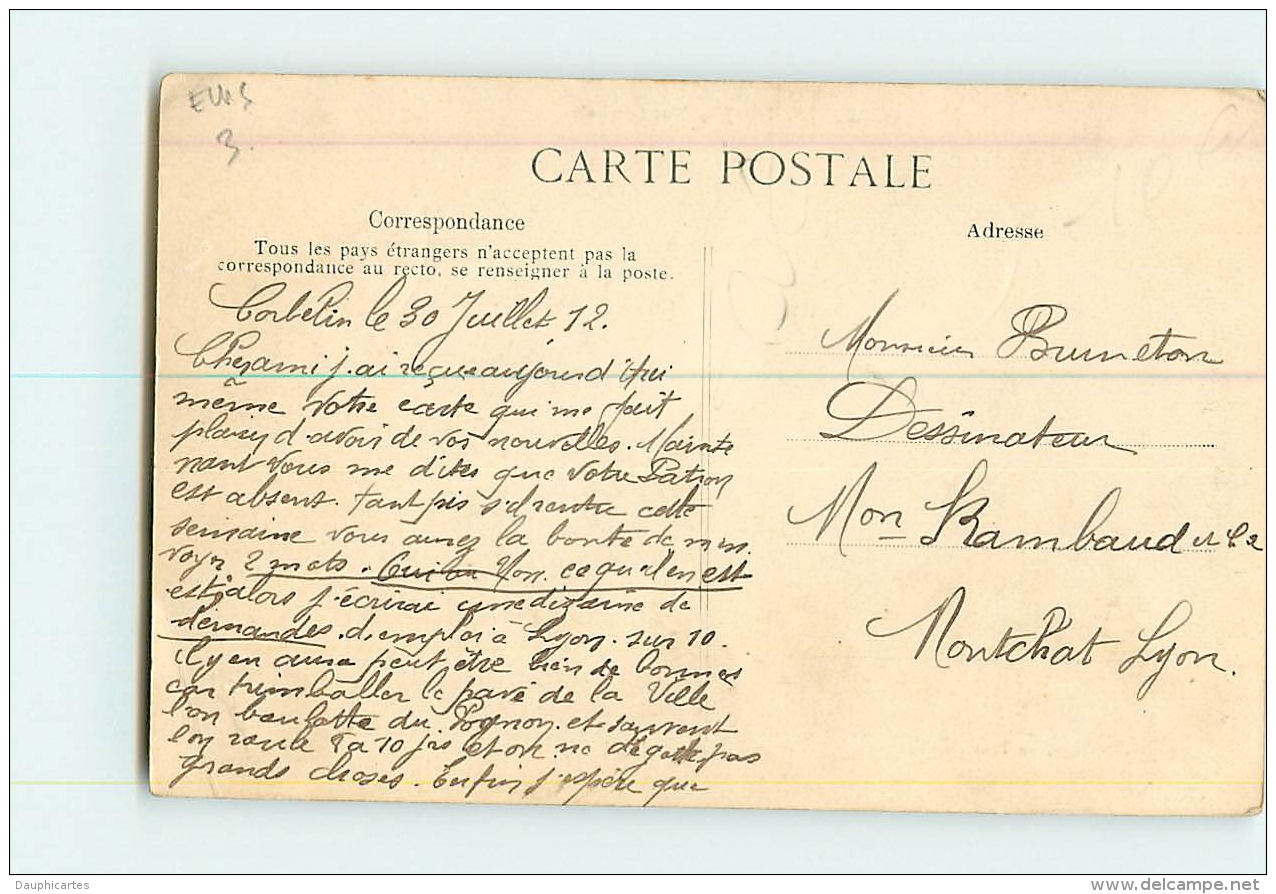 3.
CARTE POSTALE
Correspondance
Tous les pays étrangers n'acceptent pas la
correspondance au recto, se renseigner à la poste.
Corbelin le 30 Juillet 12.
Cher ami j.ai reçue aujourd'hui
même votre carte qui me fait
d.avoir de vos nouvelles. Mainte
nant vous me dites que votre Patron
est absent. tant pis s'il rentre cette
semaine vous aurez la bonté de m'en
voyer 2 mots. Oui ou Non. ce qu'il en est
est alors j.écrirai une dizaine de
demandes d.emploi à Lyon. sur 10.
il y en aura peut être bien de bonnes
car trimballer le pavé de la Ville
l'on boulotte du Pognon. et souvent
l'on roule 8 a 10 jrs et on ne dégotte pas
grands choses. Enfin j'espère que
Adresse
Monsieur Bruneton
Dessinateur
Mon Rambaud et Cie
Montchat Lyon.
Dauphicartes
www.delcampe.net